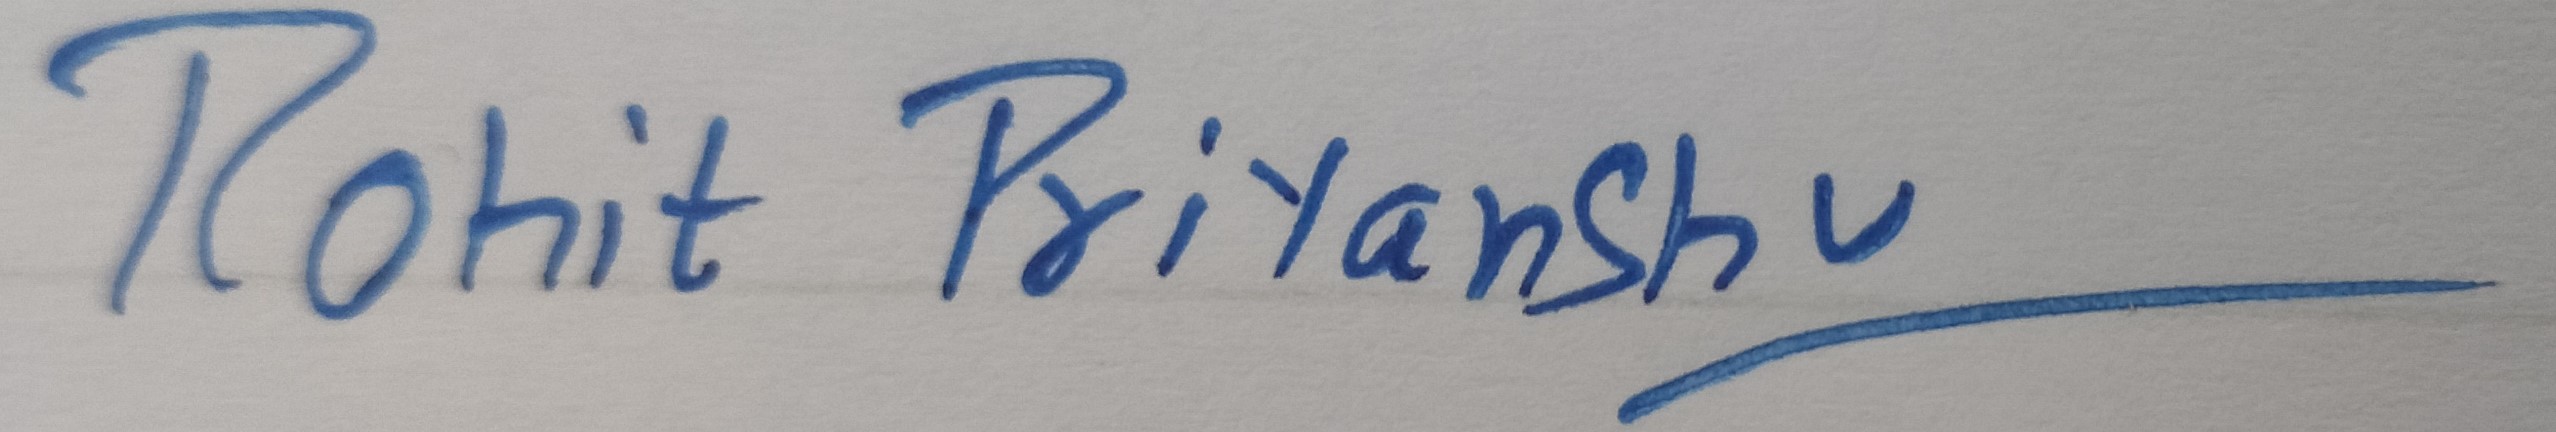 Rohit Priyanshu